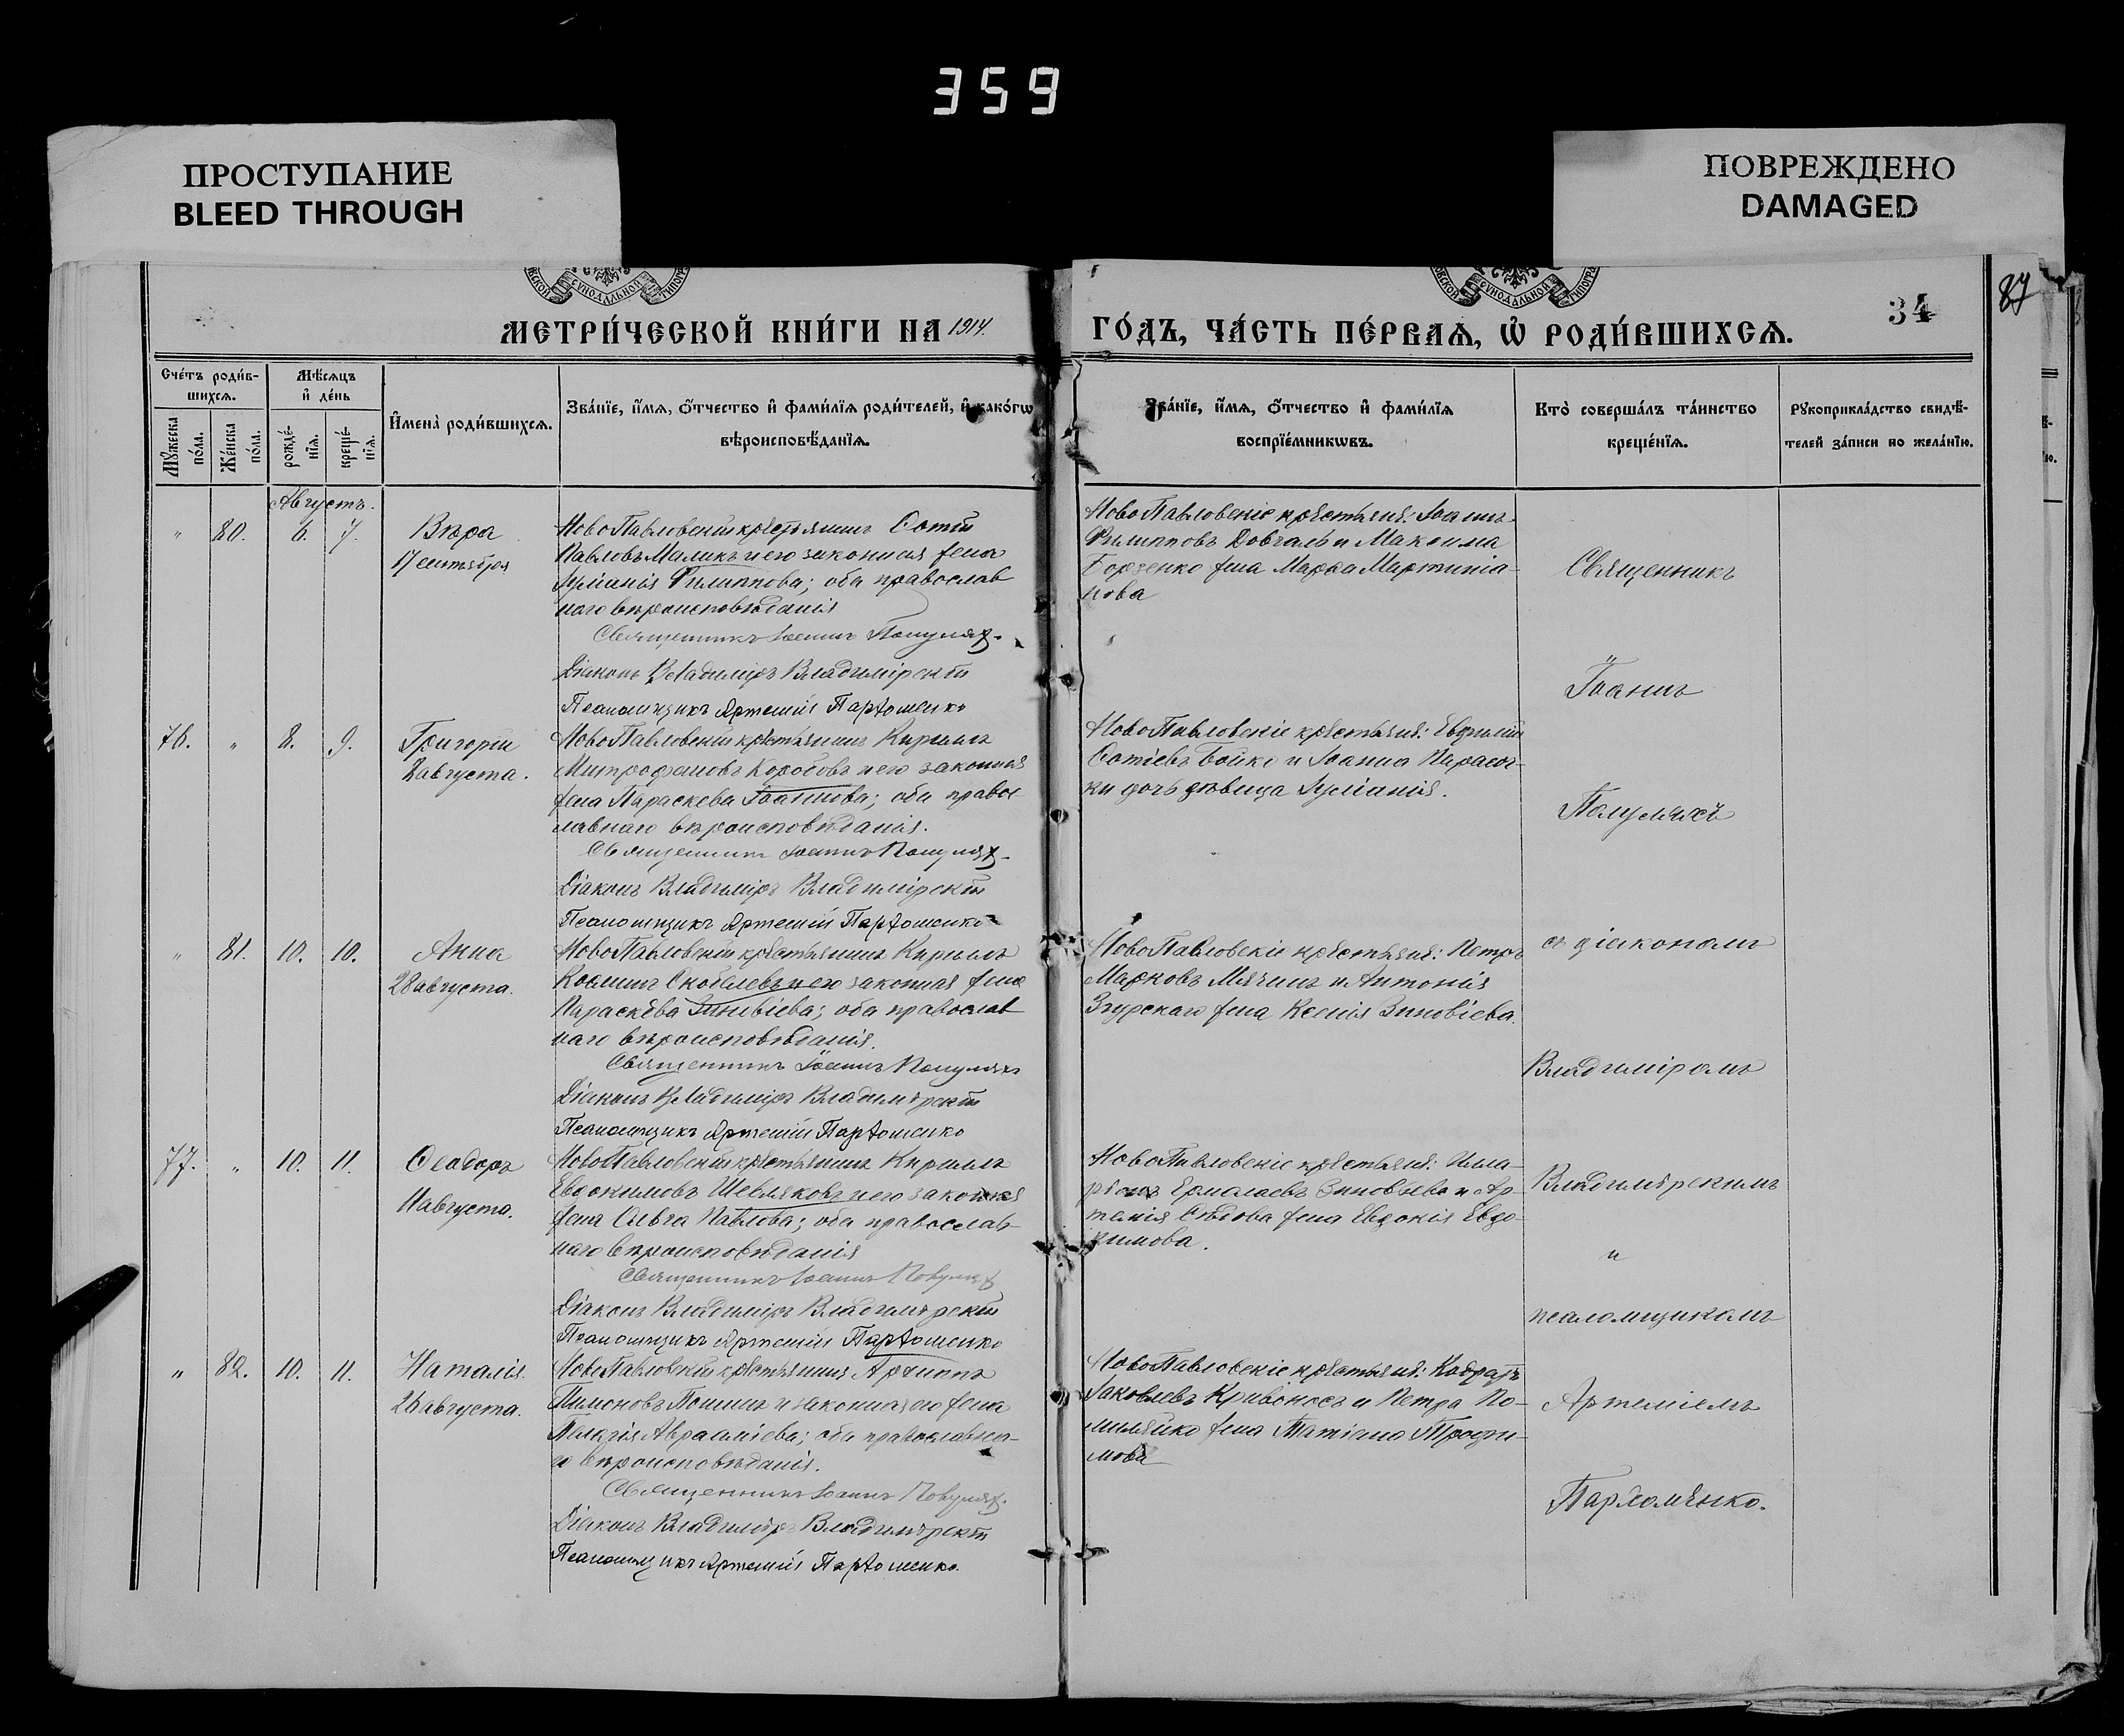 359
ПРОСТУПАНИЕ
BLEED THROUGH
ПОВРЕЖДЕНО
DAMAGED
87
34
МЕТРИ́ЧЕСКОЙ КНИ́ГИ НА 1914.
ГО́ДЪ, ЧА́СТЬ ПЕ́РВАѦ, Ѽ РОДИ́ВШИХСѦ.
Счéтъ роди́в-
шихсѧ.
Мѣ́сѧцъ
и҆ де́нь
Мꙋ́жеска по́ла.
Же́нска по́ла.
рожде́-нїѧ.
креще́-нїѧ.
И҆мена̀ роди́вшихсѧ.
Зва́нїе, и҆́мѧ, ѻ҆́тчество и҆ фами́лїѧ роди́телей, и҆ како́гѡ
вѣроисповѣ́данїѧ.
Зва́нїе, и҆́мѧ, ѻ҆́тчество и҆ фами́лїѧ
воспрїе́мникѡвъ.
Кто̀ соверша́лъ та́инство
креще́нїѧ.
Рꙋкоприкла́дство свидѣ́-
телей за́писи по жела́нїю.
Августъ.
" 80. 6. 7. Вѣра
17 сентября
НовоПавловскій крестьянинъ Фотій
Павловъ Маликъ и его законная жена
Іуліанія Филиппова; оба православ
наго вѣроисповѣданія
Священникъ Іоаннъ Полулях
Діаконъ Владиміръ Владимірскій
Псаломщикъ Артемій Пархоменко
НовоПавловскіе крестьяне: Іоаннъ
Филипповъ Довгаль и Максима
Борзенко жена Марѳа Мартиніа-
нова
76. " 8. 9. Григорій
8 августа.
НовоПавловскій крестьянинъ Кириллъ
Митрофановъ Коробовъ и его законная
жена Параскева Іоаннова; оба правос
лавнаго вѣроисповѣданія.
Священникъ Іоаннъ Полулях
Діаконъ Владиміръ Владимірскій
Псаломщикъ Артемій Пархоменко
НовоПавловскіе крестьяне: Евфимій
Фотіевъ Бойко и Іоанна
дочь дѣвица Іуліанія.
" 81. 10. 10. Анна
28 августа.
НовоПавловскій крестьянинъ Кириллъ
Косминъ Скобелевъ и его законная жена
Параскева Зиновіева; оба православ
наго вѣроисповѣданія.
Священникъ Іоаннъ Полулях
Діаконъ Владиміръ Владимірскій
Псаломщикъ Артемій Пархоменко
НовоПавловскіе крестьяне: Петръ
Марковъ Мячинъ и Антонія
Згурскаго жена Ксенія Зиновіева.
77. " 10. 11. Ѳеодоръ
11 августа.
НовоПавловскій крестьянинъ Кириллъ
Евдокимовъ Шевляковъ и его законная
жена Ольга Павлова; оба православ-
наго вѣроисповѣданія
Священникъ Іоаннъ Полулях
Діаконъ Владиміръ Владимірскій
Псаломщикъ Артемій Пархоменко
НовоПавловскіе крестьяне: Илла-
ріонъ Ермолаевъ Зиновьевъ и Ар-
темія Сѣдова жена Евдокія Евдо-
кимова.
" 82. 10. 11. Наталія.
26 августа.
НовоПавловскій крестьянинъ Архиппъ
Тимоновъ и законная его жена
Авраамiева; оба православна-
го вѣроисповѣданія.
Священникъ Іоаннъ Полулях
Діаконъ Владиміръ Владимірскій
Псаломщикъ Артемій Пархоменко.
НовоПавловскіе крестьяне: Кодратъ
Іаковлевъ Кривоносъ и Петра По-
миляйко жена Татіана Трофи-
мова
Священникъ
Іоаннъ
Полуляхъ
съ діакономъ
Владиміромъ
Владимірскимъ
и
псаломщикомъ
Артеміемъ
Пархоменко.